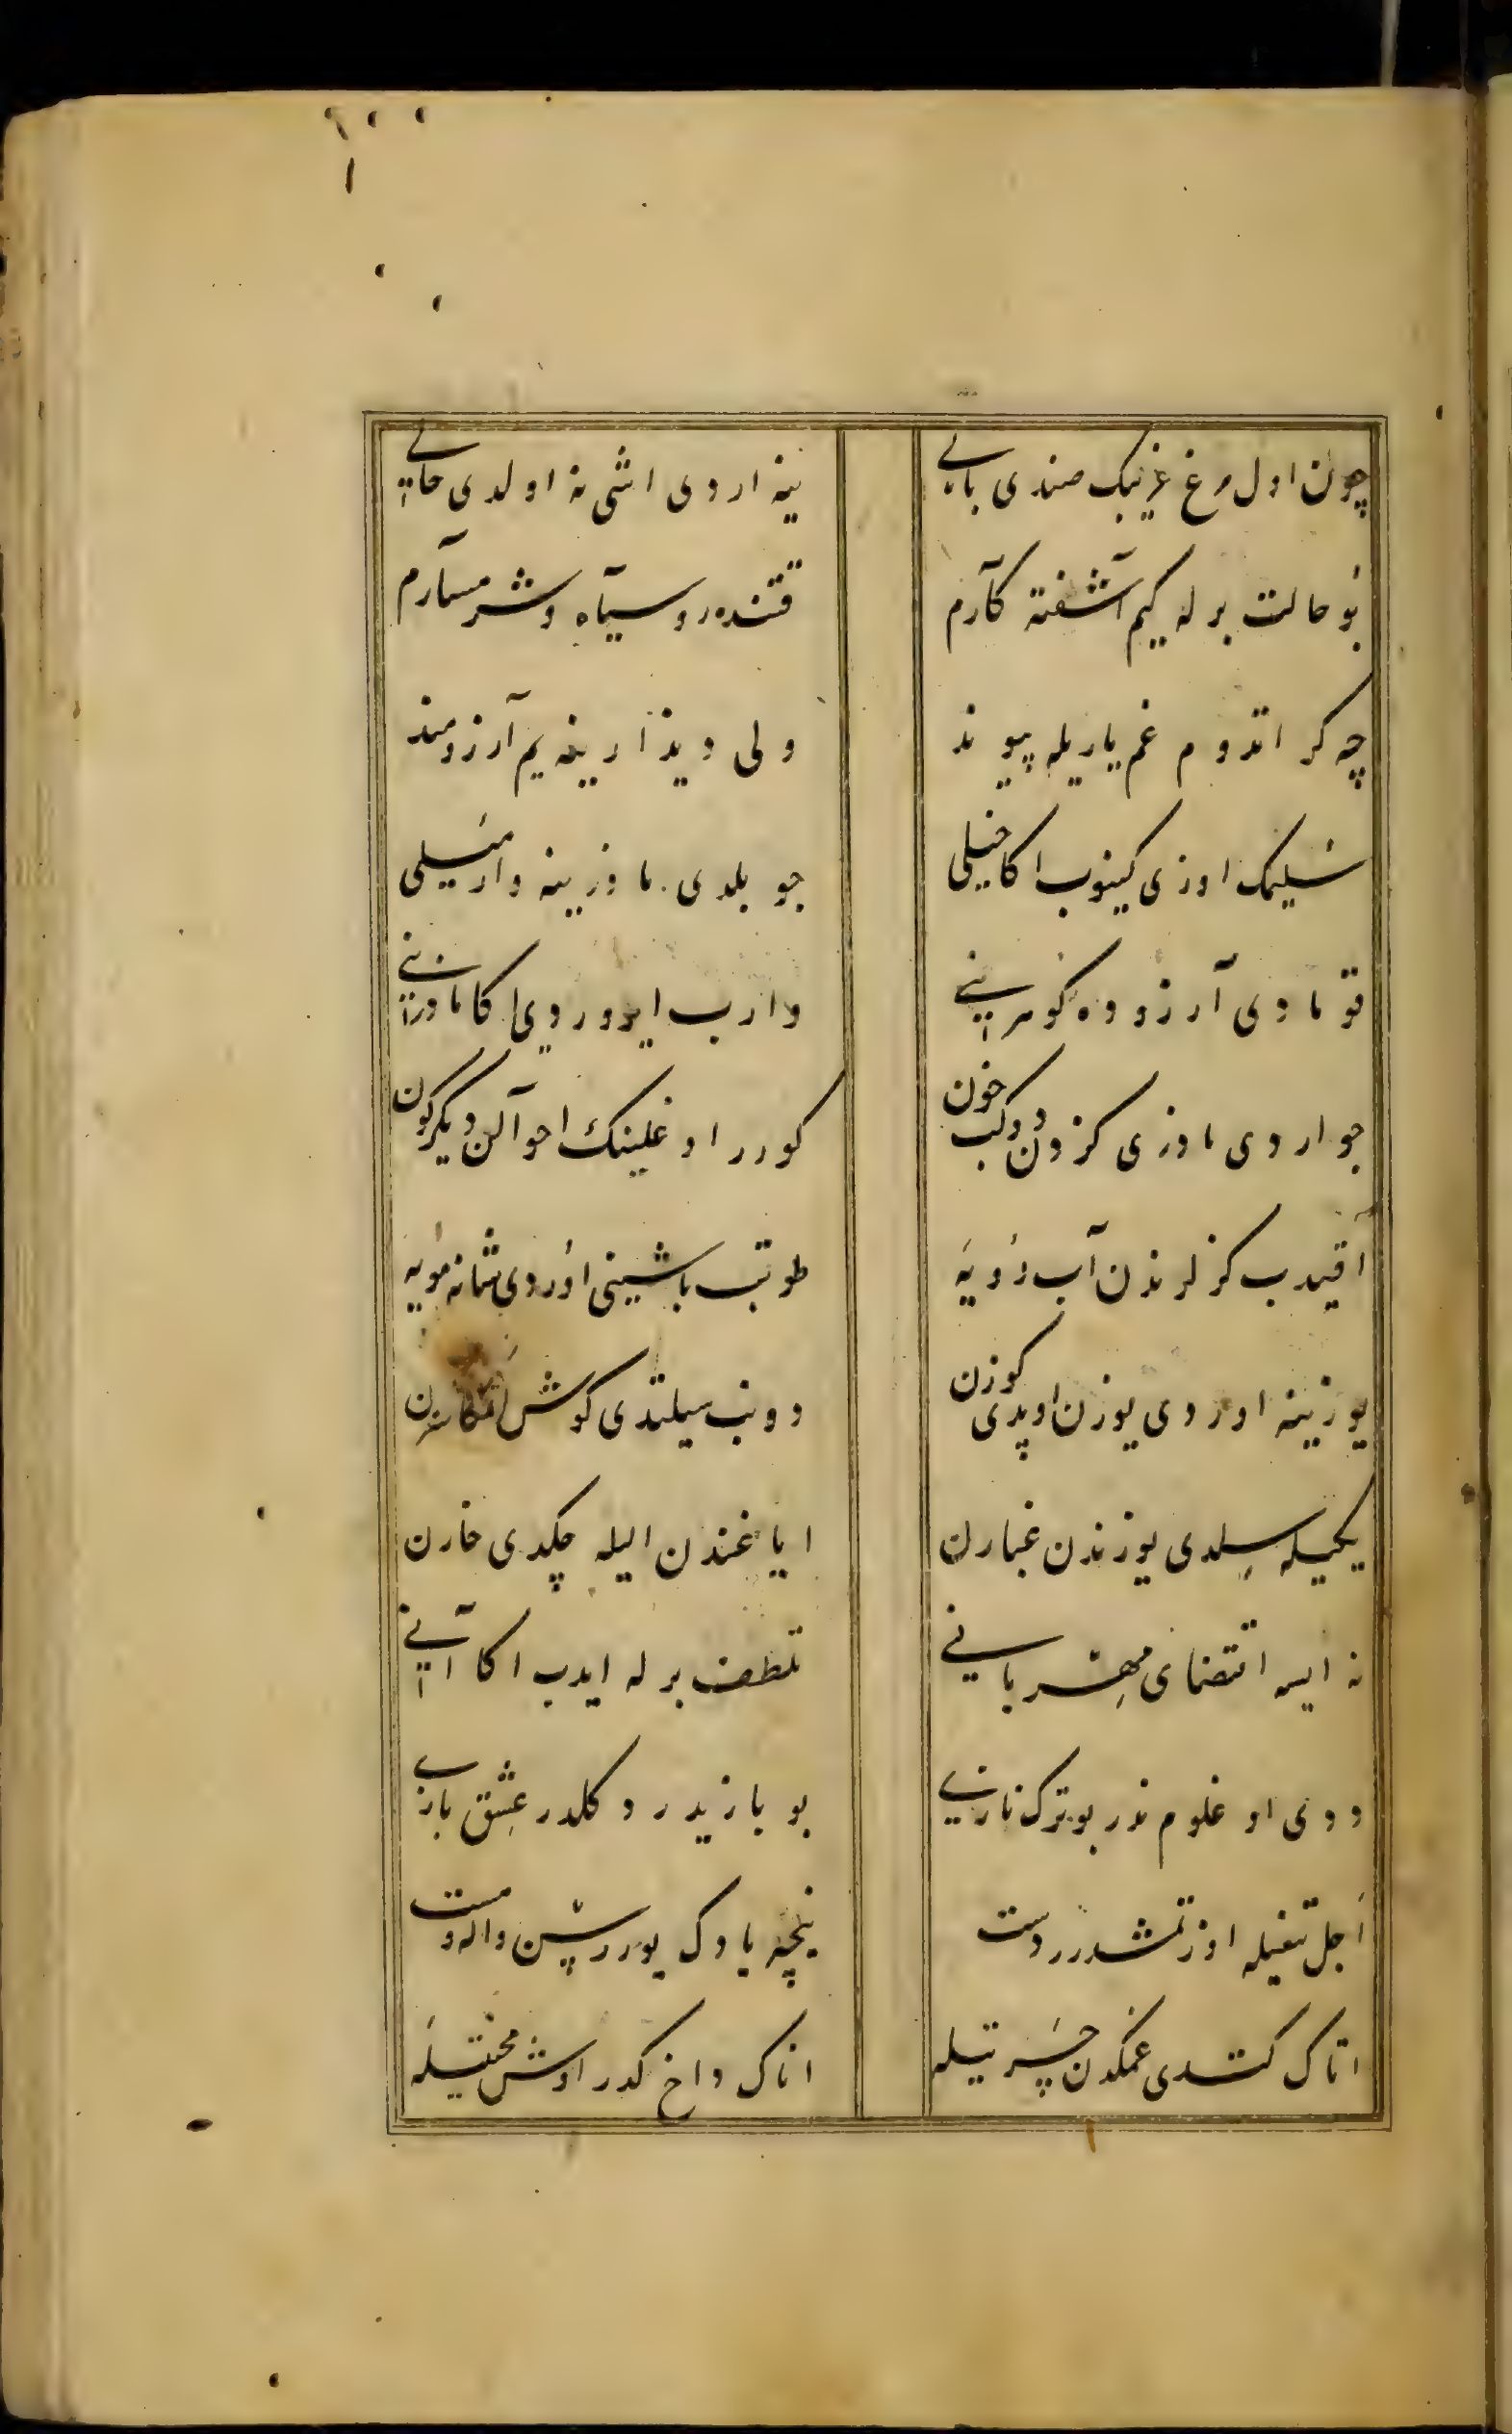 چون اول مرغ غریبک صندی بالی
نیه اردی اشی نه اولدی حالی
بو حالت برله کیم آشفته کارم
قتنده روسیاه و شرمسارم
چه کر اتدوم غم یاریله پیوند
ولی ویدارینه یم آرزومند
سلیمک اوزی کینوب اکا خیلی
چو بلدی ماوزینه وار میلی
قومادی آرزوده کومرانی
وارب ایوردی اکا ماورانی
چو اردی ماوزی کزدن دوکب خون
کورر اوغلینک احوالن دیکرکون
اقیدب کزلرندن آب رویه
طوتب باشینی اوردی شانه مویه
یوزینه اوردی یوزن اوپدی کوزن
دونب سیلتدی کوش
یکیله سلدی یوزندن غبارن
ایاغندن الیله چکدی خارن
نه ایسه اقتضای مهربانی
تلطف برله ایدب اکا آنی
ددی اوغلوم ندر بو ترک نازی
بو بازیدر دکلدر عشق بازی
اجل تیغیله اوزتمشدرر دست
نیچه یاوک یوررسن واله و مست
اتاک کتدی غمکدن حسرتیله
اناک داخ کدر اوش محنتیله